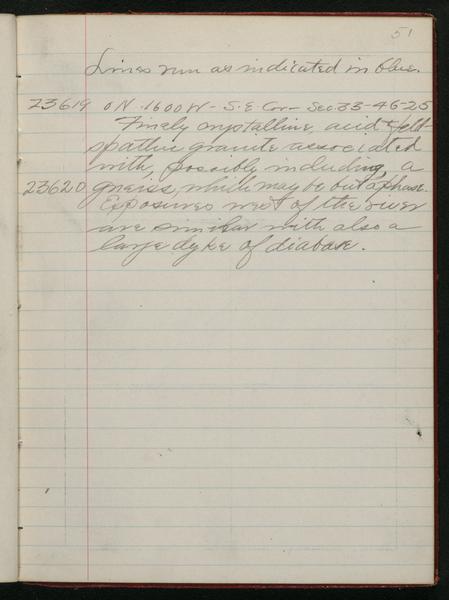 51
Lines run as indicated in blue.
23619 0 N. 1600 W - S. E. Cor - Sec. 33-46-25
Finely crystalline, acid & feld-
spathic granite associated
with, possibly including, a
23620 gneiss, which may be but a phase.
Exposures west of the river
are similar with also a
large dyke of diabase.